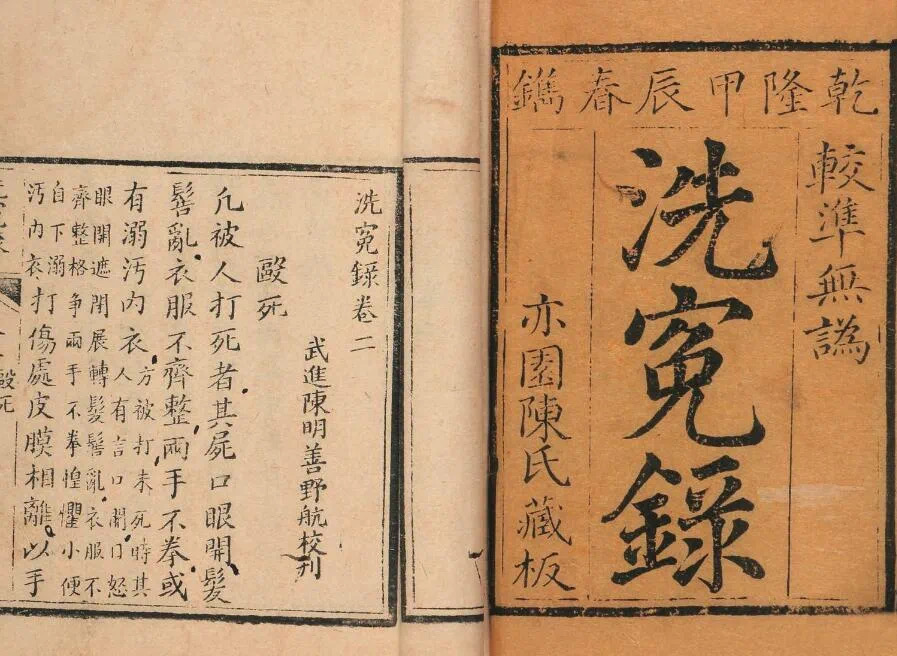 乾隆甲辰春鐫
較準無譌
洗寃錄
亦園陳氏藏板
洗寃錄卷二
武進陳明善野航校刊
毆死
凡被人打死者其屍口眼開髮
髻亂衣服不齊整兩手不拳或
有溺汚內衣方被打未死時其人有言口開口怒
眼開遮閉展轉髮髻亂衣服不齊整格争兩手不拳惶懼小便
自下溺汚內衣打傷處皮膜相離以手
毆死